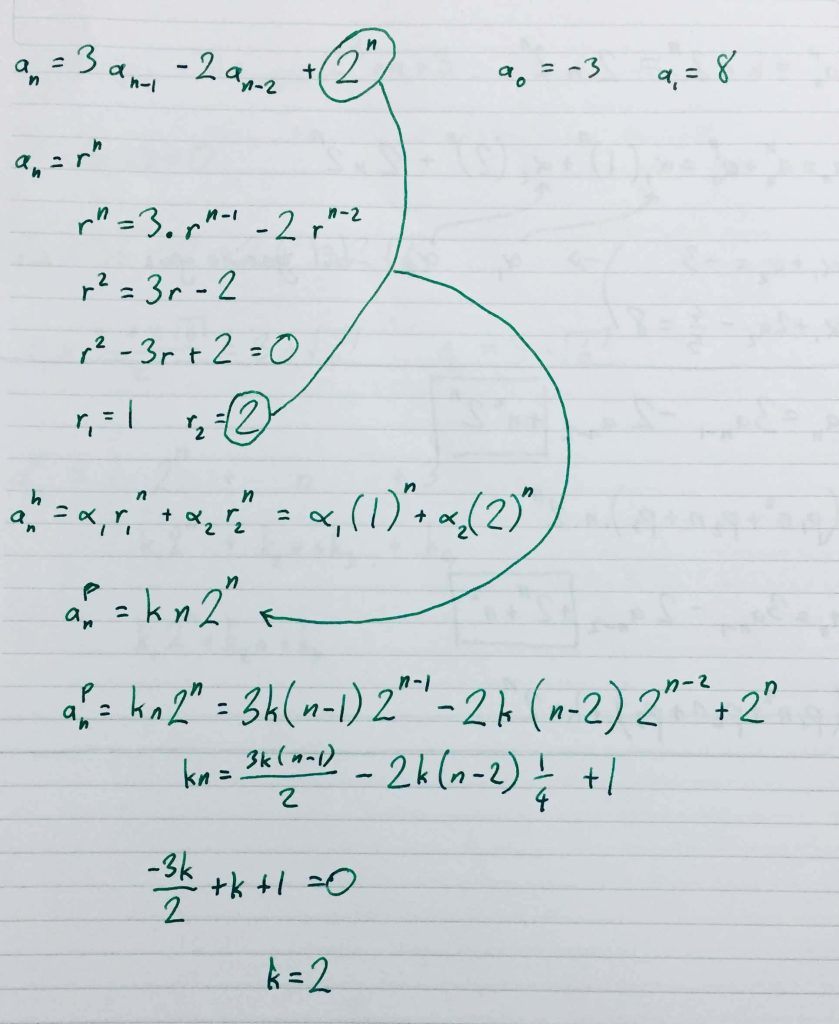 aₙ = 3aₙ₋₁ - 2aₙ₋₂ + 2ⁿ    a₀ = -3    a₁ = 8
aₙ = rⁿ
rⁿ = 3 · rⁿ⁻¹ - 2rⁿ⁻²
r² = 3r - 2
r² - 3r + 2 = 0
r₁ = 1    r₂ = 2
aₙʰ = α₁r₁ⁿ + α₂r₂ⁿ = α₁(1)ⁿ + α₂(2)ⁿ
aₙᵖ = kn2ⁿ
aₙᵖ = kn2ⁿ = 3k(n-1)2ⁿ⁻¹ - 2k(n-2)2ⁿ⁻² + 2ⁿ
kn = 3k(n-1)/2 - 2k(n-2) 1/4 + 1
-3k/2 + k + 1 = 0
k = 2